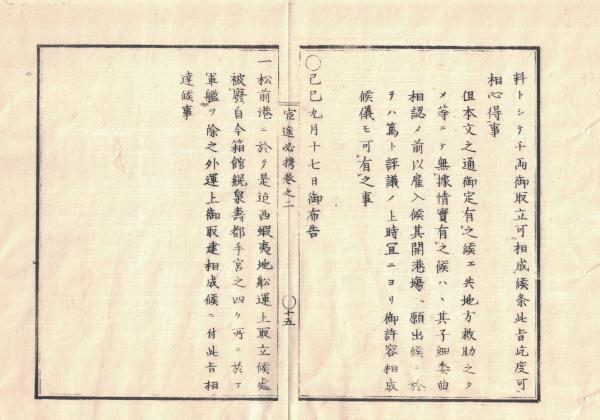 料トシテ千両御取立可相成候条此旨吃度可
相心得事
但本文之通御定有之候エ共地方救助之タ
メ等ニテ無據情實有之候ハヽ其子細委曲
相認メ前以雇入候其開港場ヘ願出候ニ於
テハ篤ト評議ノ上時冝ニヨリ御許容相成
候儀モ可有之事
〇己巳九月十七日御布告
宦途必携巻之二
〇十五
一松前港ニ於テ是迠西蝦夷地舩運上取立候處
被廢自今箱館幌泉壽都手宮之四ケ所ニ於テ
軍艦ヲ除之外運上御取建相成候ニ付此旨相
達候事